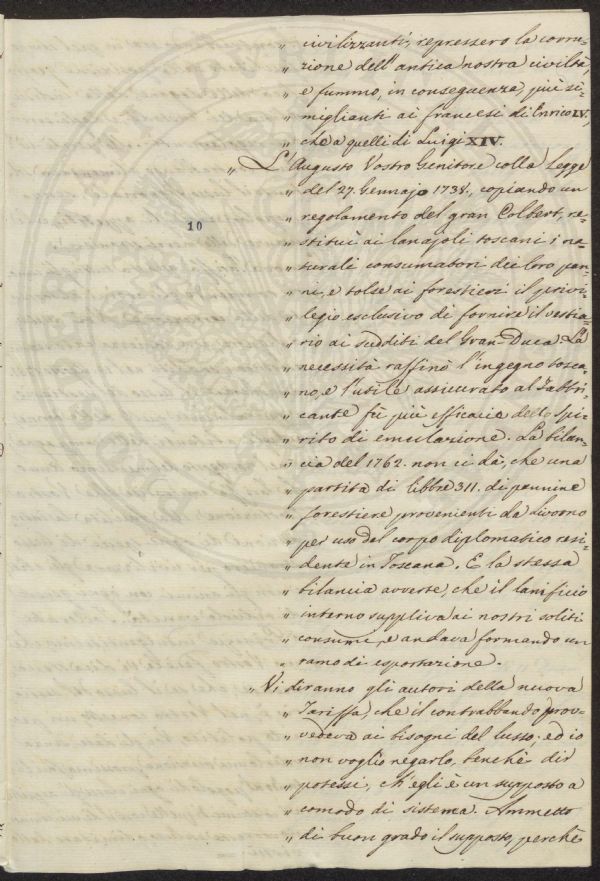 „ civilizzanti, repressero la corru-
„ zione dell'antica nostra civiltà,
„ e fummo, in conseguenza, più si-
„ miglianti ai francesi di Enrico IV.,
„ che a quelli di Luigi XIV.
„ L'Augusto Vostro Genitore colla Legge
„ del 27. Gennajo 1738., copiando un
10
„ regolamento del gran Colbert, re-
„ stituì ai lanajoli toscani i na-
„ turali consumatori dei loro pan-
„ ni, e tolse ai forestieri il privi-
„ legio esclusivo di fornire il vestia-
„ rio ai sudditi del Gran-Duca. La
„ necessità raffinò l'ingegno tosca-
„ no, e l'utile assicurato al Fabbri-
„ cante fù più efficacie dello spi-
„ rito di emulazione. La bilan-
„ cia del 1762. non ci dà, che una
„ partita di libbre 311. di pannine
„ forestiere provenienti da Livorno
„ per uso del corpo diplomatico resi-
„ dente in Toscana. E la stessa
„ bilancia avverte, che il lanificio
„ interno suppliva ai nostri soliti
„ consumi, e andava formando un
„ ramo di esportazione.
„ Vi diranno gli autori della nuova
„ Tariffa, che il contrabbando prov-
„ vedeva ai bisogni del lusso; ed io
„ non voglio negarlo, benchè dir
„ potessi, ch'egli è un supposto a
„ comodo di sistema. Ammetto
„ di buon grado il supposto, perchè